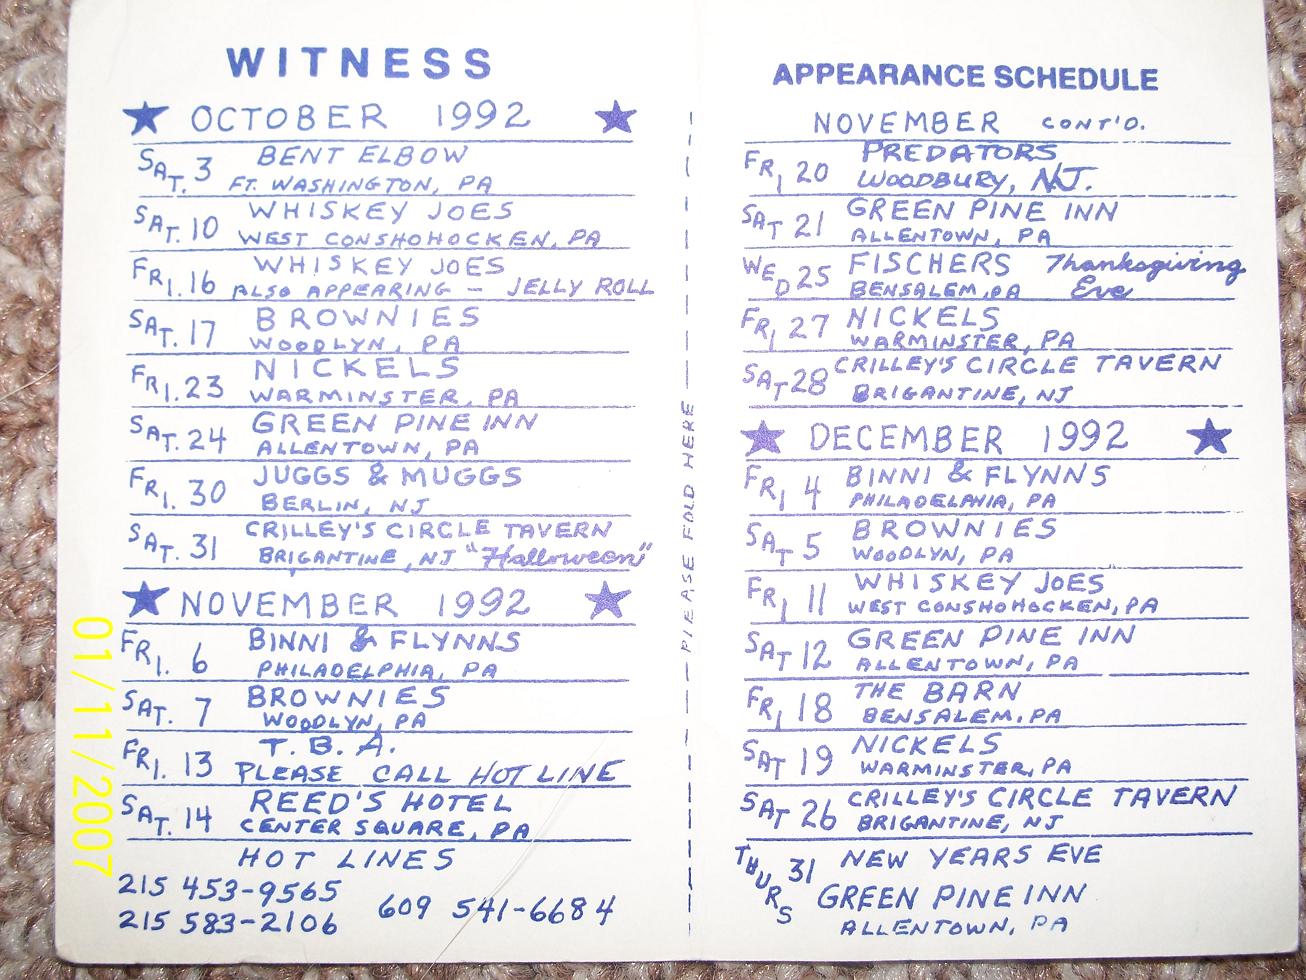 WITNESS
★ OCTOBER 1992 ★
SAT. 3 BENT ELBOW
FT. WASHINGTON, PA
SAT. 10 WHISKEY JOES
WEST CONSHOHOCKEN, PA
FRI. 16 WHISKEY JOES
ALSO APPEARING - JELLY ROLL
SAT. 17 BROWNIES
WOODLYN, PA
FRI. 23 NICKELS
WARMINSTER, PA
SAT. 24 GREEN PINE INN
ALLENTOWN, PA
FRI. 30 JUGGS & MUGGS
BERLIN, NJ
SAT. 31 CRILLEY'S CIRCLE TAVERN
BRIGANTINE, NJ "Halloween"
★ NOVEMBER 1992 ★
FRI. 6 BINNI & FLYNNS
PHILADELPHIA, PA
SAT. 7 BROWNIES
WOODLYN, PA
FRI. 13 T.B.A.
PLEASE CALL HOT LINE
SAT. 14 REED'S HOTEL
CENTER SQUARE, PA
HOT LINES
215 453-9565
609 541-6684
215 583-2106
PLEASE FOLD HERE
APPEARANCE SCHEDULE
NOVEMBER CONT'D.
FRI 20 PREDATORS
WOODBURY, N.J.
SAT 21 GREEN PINE INN
ALLENTOWN, PA
WED 25 FISCHERS Thanksgiving
BENSALEM, PA Eve
FRI 27 NICKELS
WARMINSTER, PA
SAT 28 CRILLEY'S CIRCLE TAVERN
BRIGANTINE, NJ
★ DECEMBER 1992 ★
FRI 4 BINNI & FLYNNS
PHILADELPHIA, PA
SAT 5 BROWNIES
WOODLYN, PA
FRI 11 WHISKEY JOES
WEST CONSHOHOCKEN, PA
SAT 12 GREEN PINE INN
ALLENTOWN, PA
FRI 18 THE BARN
BENSALEM, PA
SAT 19 NICKELS
WARMINSTER, PA
SAT 26 CRILLEY'S CIRCLE TAVERN
BRIGANTINE, NJ
THURS 31 NEW YEARS EVE
GREEN PINE INN
ALLENTOWN, PA
01/11/2007